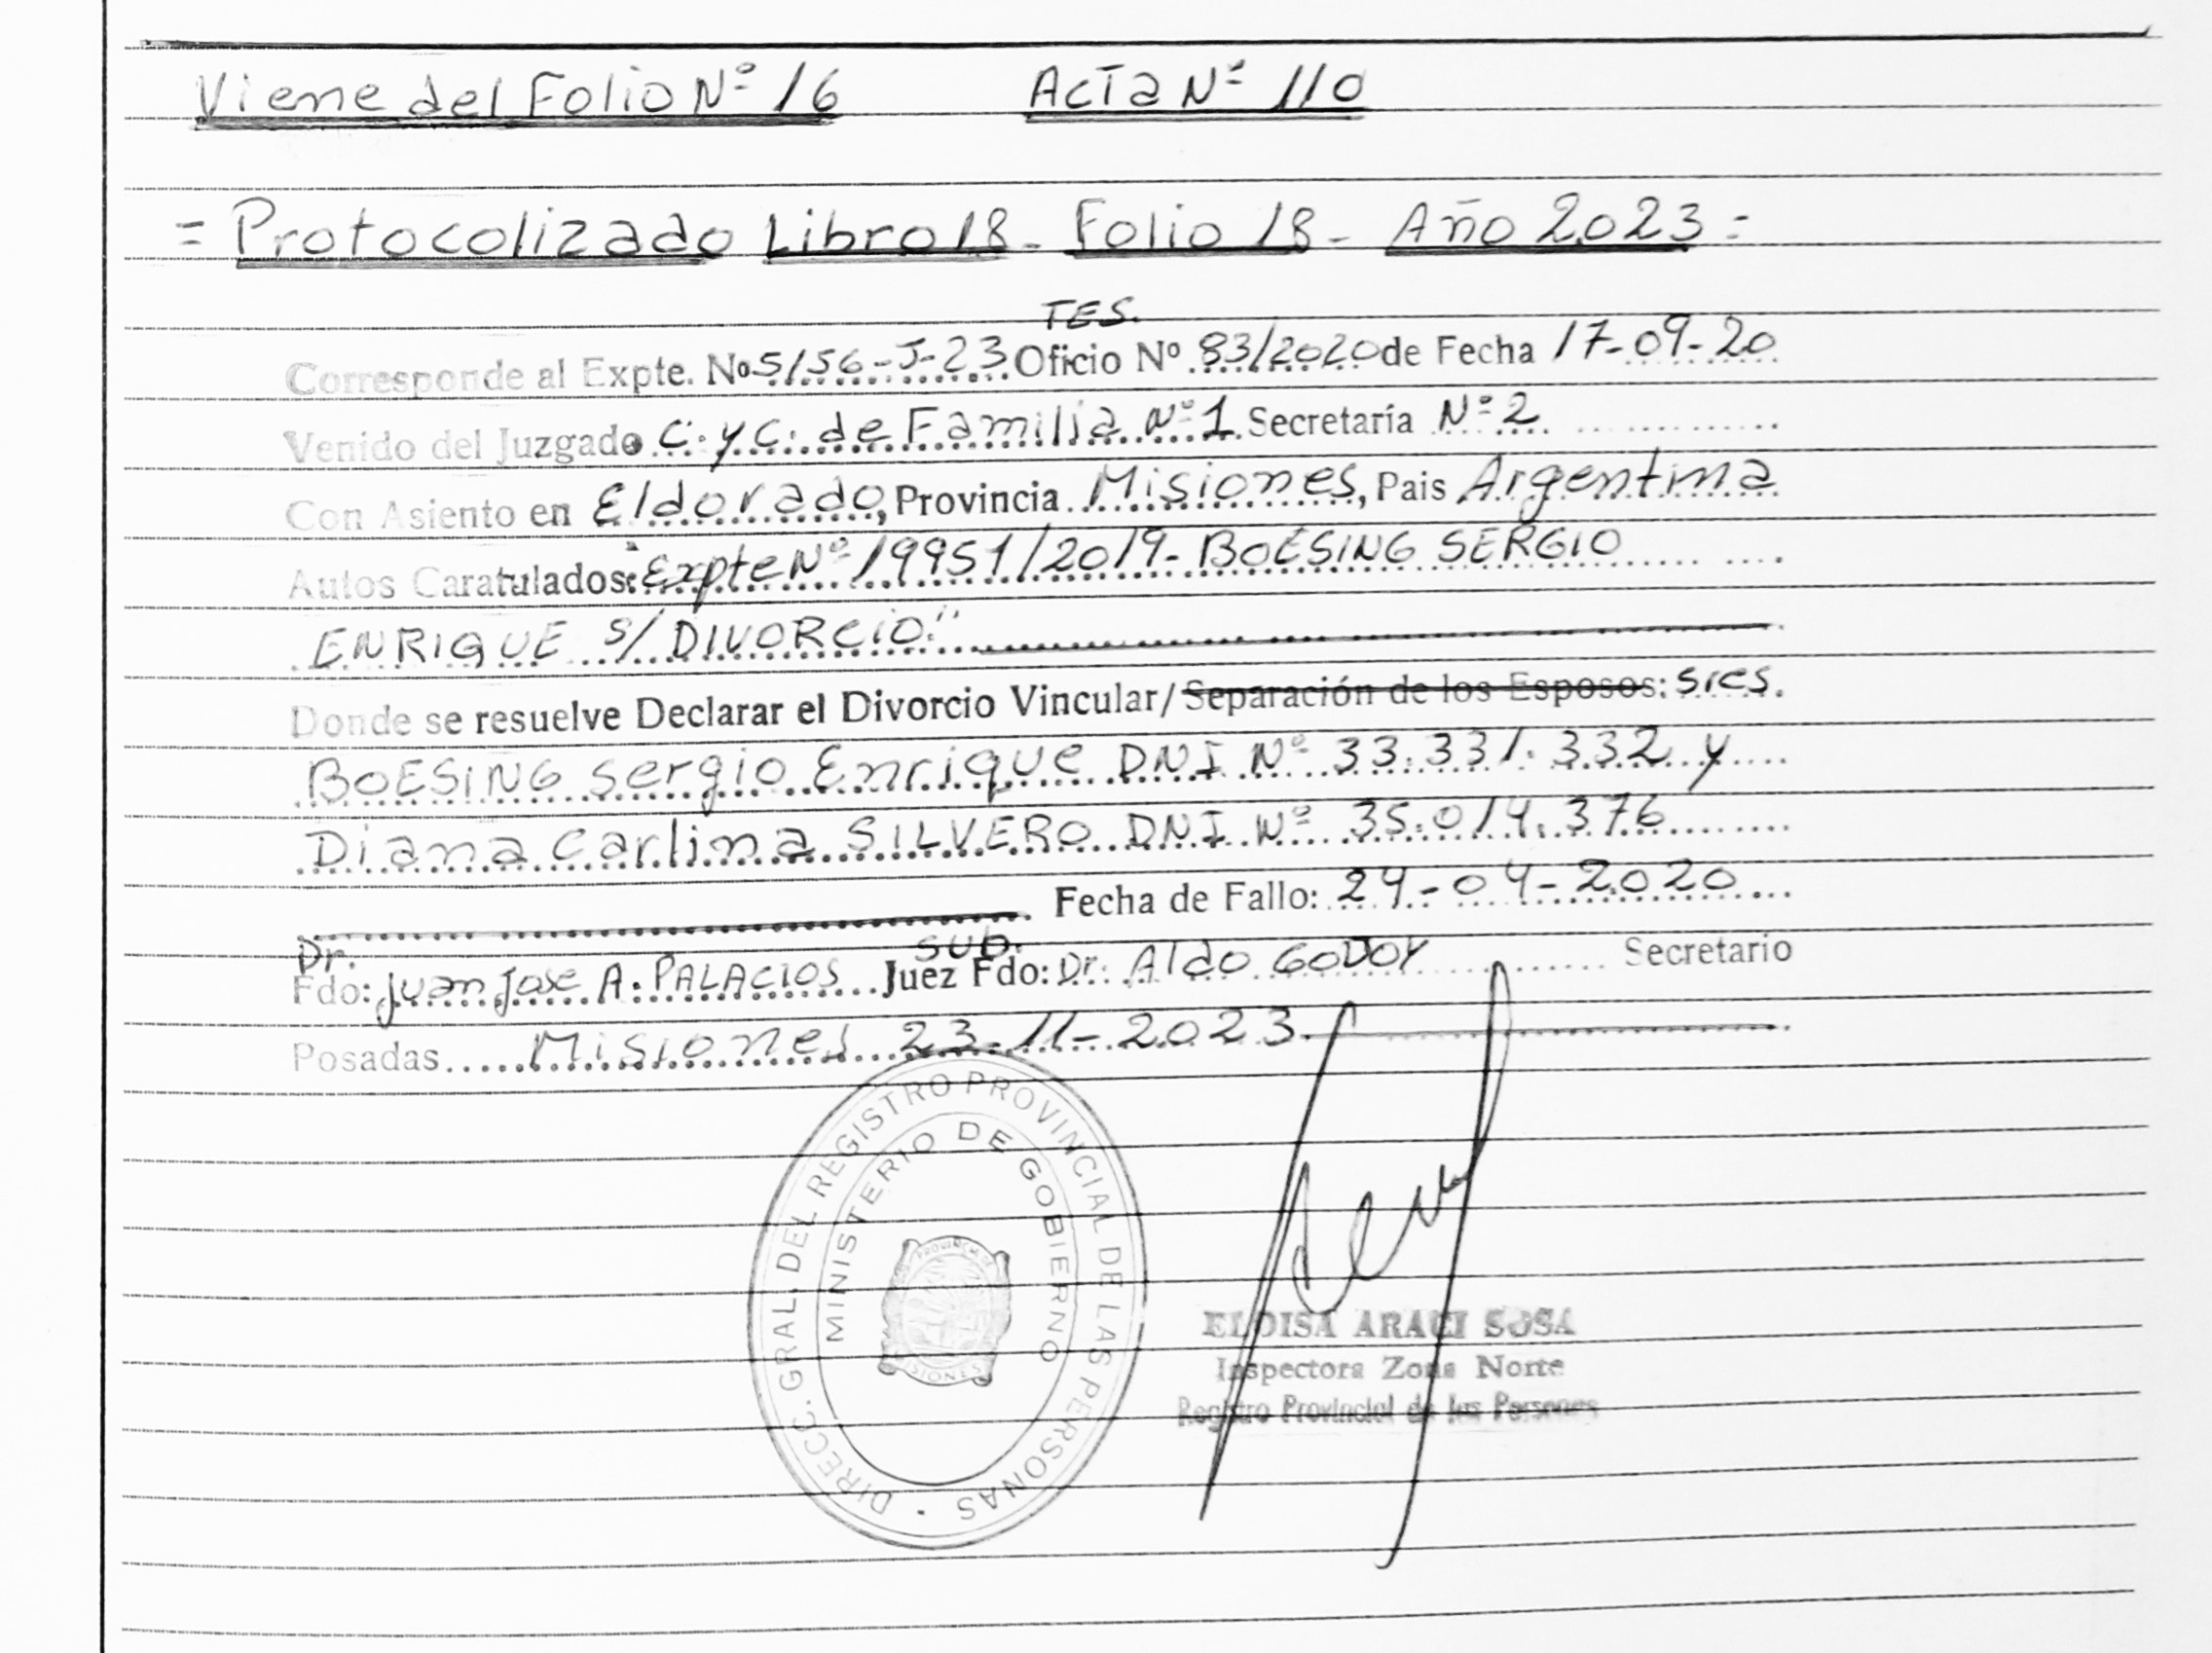 Viene del Folio Nº 16 Acta Nº 110
= Protocolizado Libro 18 - Folio 18 - Año 2023 =
TES.
Corresponde al Expte. No 5156-J-23 Oficio Nº 83/2020 de Fecha 17-09-20
Venido del Juzgado C. y C. de Familia Nº 1 Secretaría Nº 2
Con Asiento en Eldorado, Provincia Misiones, Pais Argentina
Autos Caratulados: "Expte Nº 19951/2019 - BOESING SERGIO
ENRIQUE s/ DIVORCIO."
Donde se resuelve Declarar el Divorcio Vincular/ Separación de los Esposos: sres.
BOESING Sergio Enrique DNI Nº 33.331.332 y
Diana Carlina SILVERO DNI Nº 35.014.376
Fecha de Fallo: 24-04-2020
Dr. SUB.
Fdo: Juan Jose A. PALACIOS Juez Fdo: Dr. Aldo GODOY Secretario
Posadas Misiones 23-11-2023
DIRECC. GRAL. DEL REGISTRO PROVINCIAL DE LAS PERSONAS
MINISTERIO DE GOBIERNO
PROVINCIA DE
MISIONES
ELOISA ARACI SOSA
Inspectora Zona Norte
Registro Provincial de las Personas